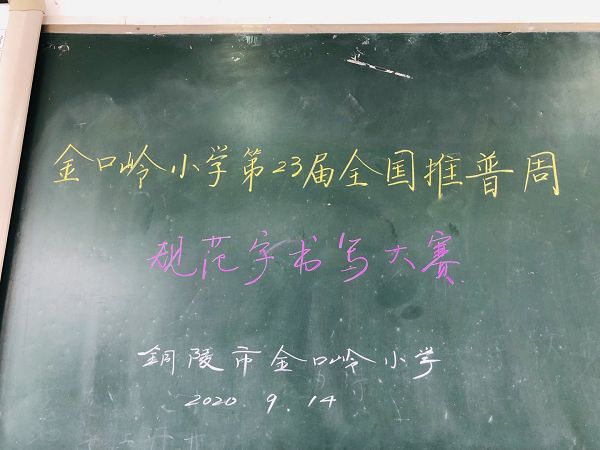 金口岭小学第23届全国推普周
规范字书写大赛
铜陵市金口岭小学
2020.9.14